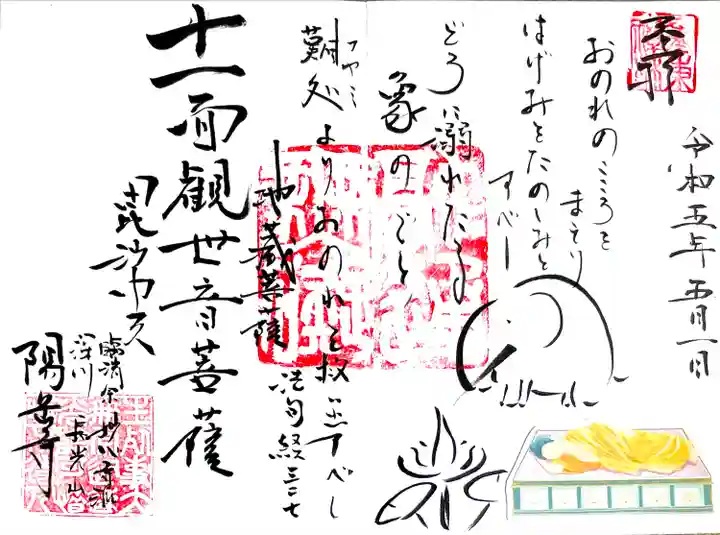 奉拝
令和五年五月一日
おのれのこころを
まもり
はげみをたのしみと
すべし
どろに溺れたる
象のごとく
難処よりおのれを救出すべし
法句経三二七
地蔵菩薩
十一面観世音菩薩
毘沙門天
臨済宗妙心寺派
深川
長光山
陽岳寺